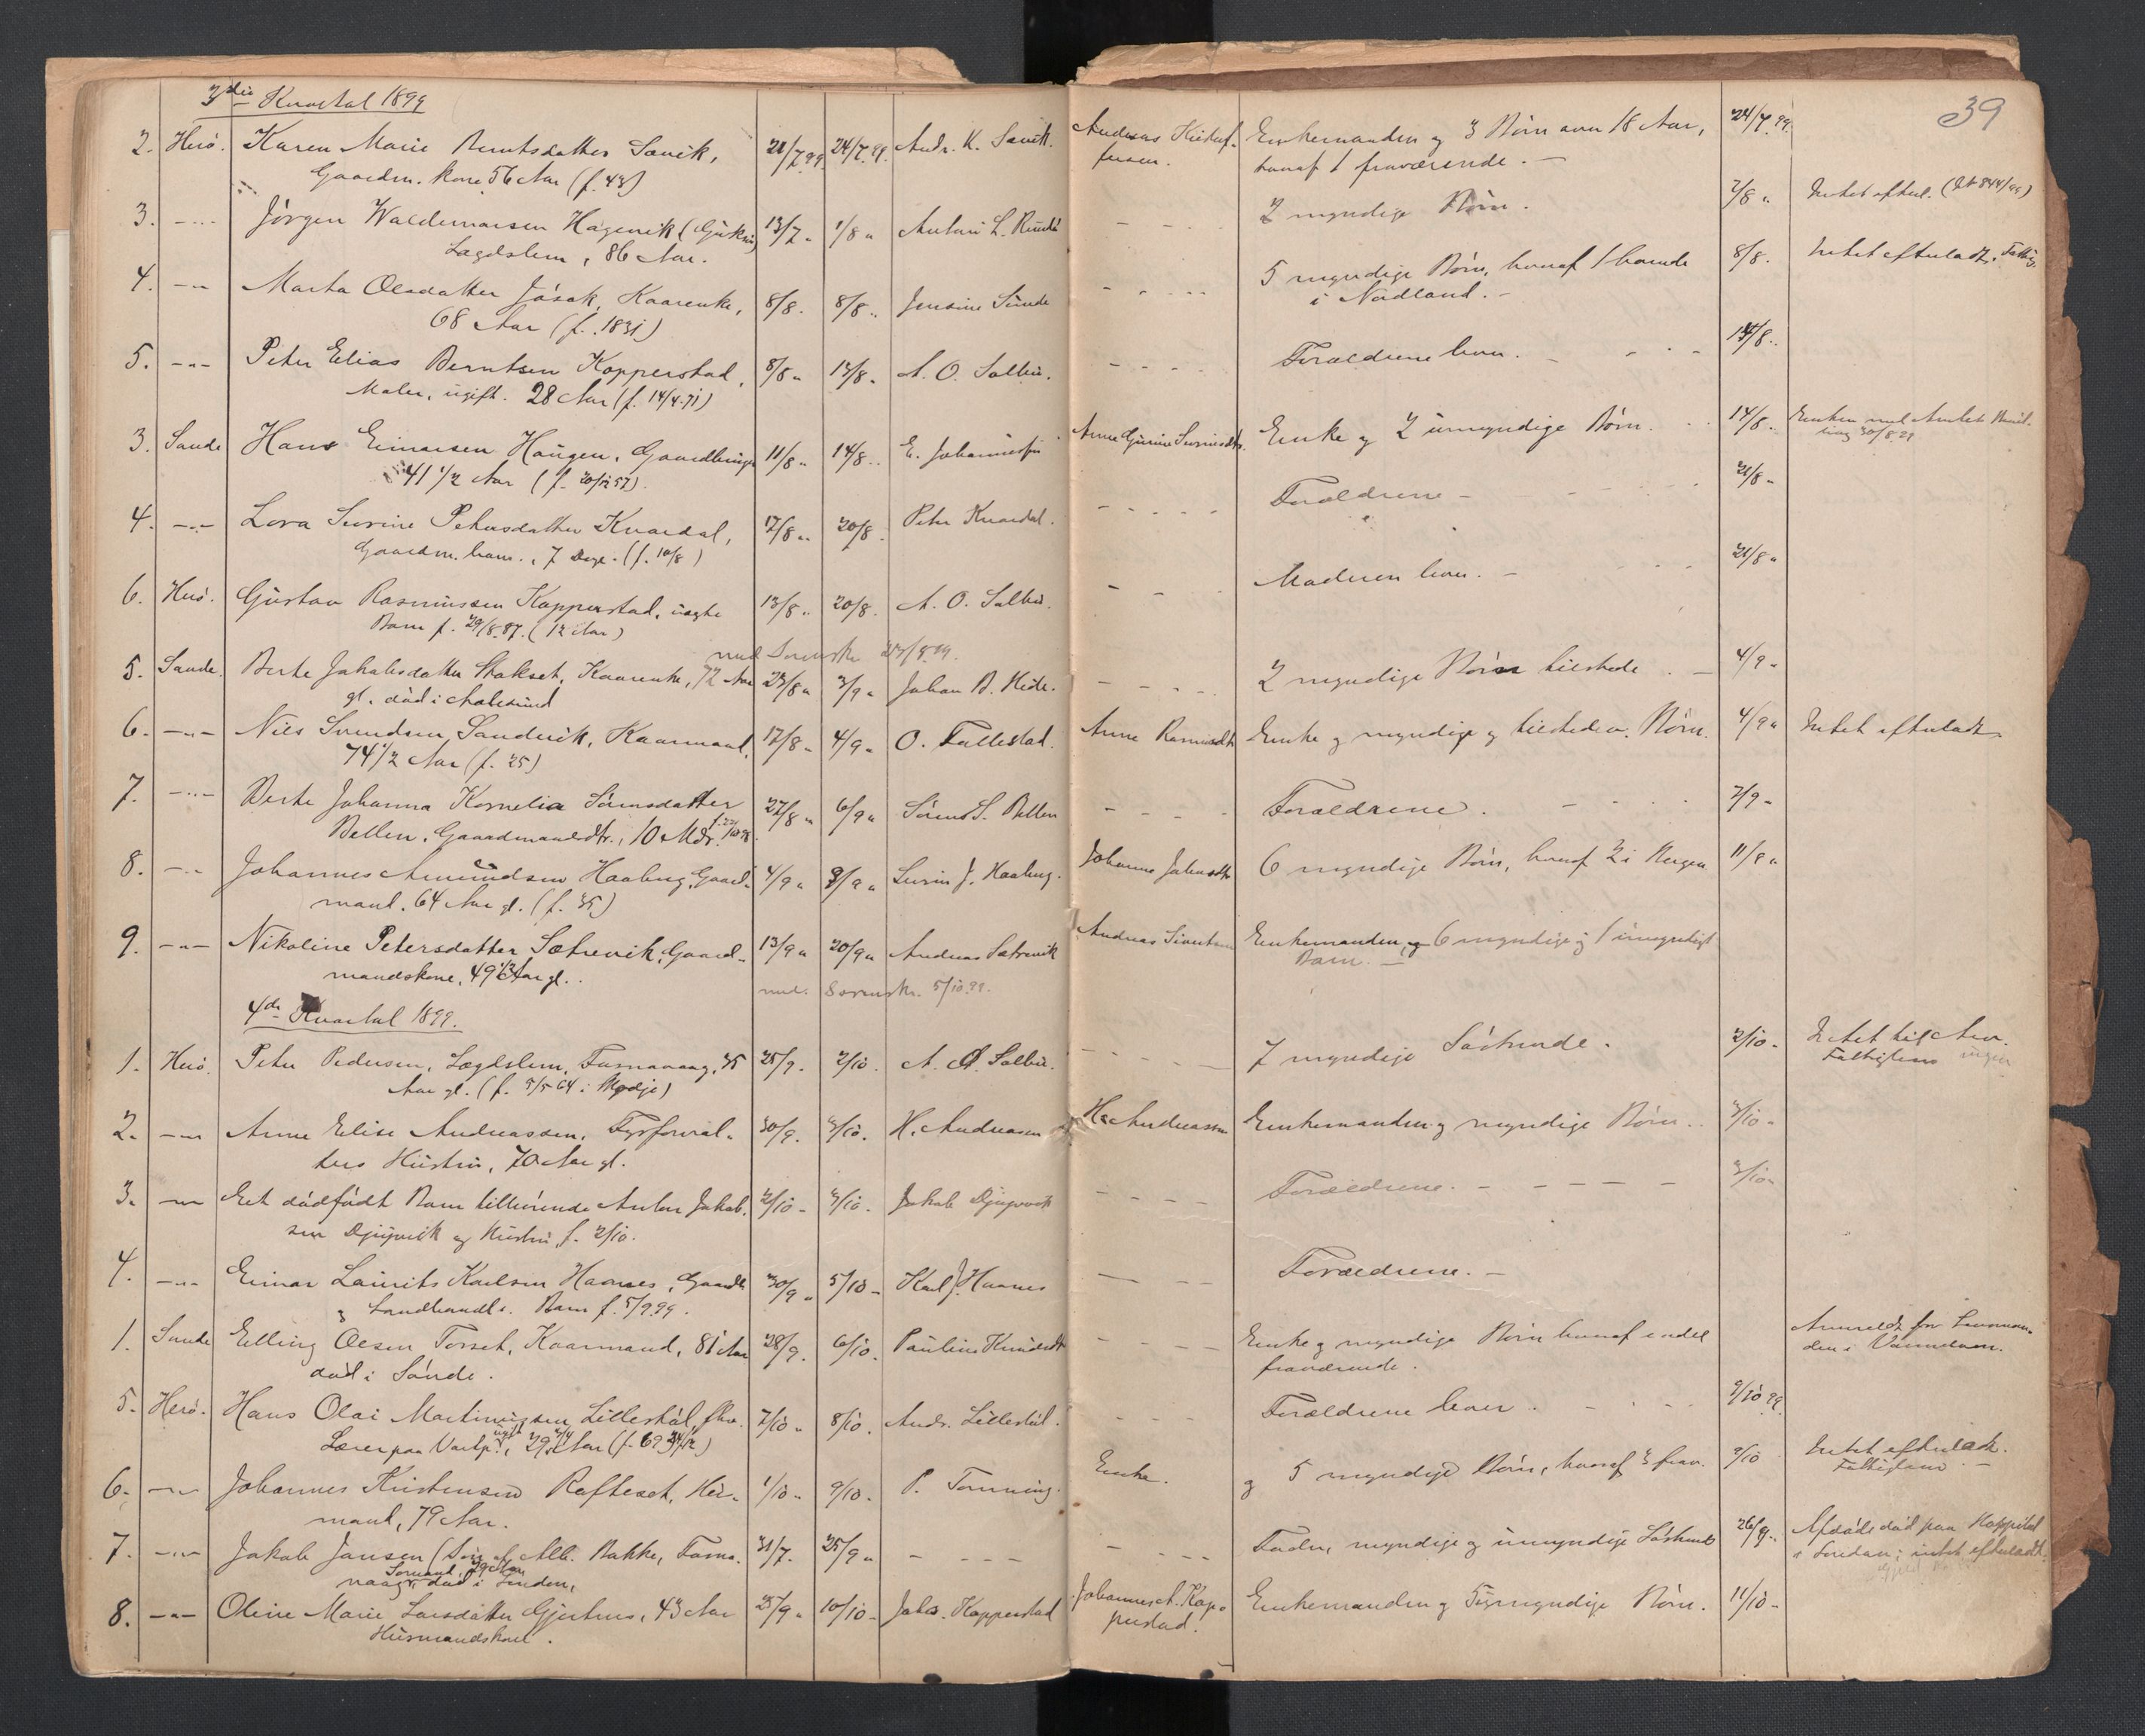 39
3die Kvartal 1899
2. Herö. Karen Marie Berntsdatter Sævik, 21/7 99 24/7 99. Andr. K. Sævik. Andreas Kristof- Enkemanden og 3 Börn over 18 Aar, 24/7 99.
Gaardm. kone 56 Aar (f. 43) fersen. hvoraf 1 fraværende. —
3. -"- Jörgen Waldemarsen Hagevik (Gjerken) 13/7 " 1/8 " Antoni L. - - - 2 myndige Börn. 2/8 " Intet efterl. (844/99)
Lægdslem, 86 Aar.
4. -"- Marta Olsdatter Jösok, Kaarenke, 8/8. 8/8 " Jensine Sunde - - - 5 myndige Börn, hvoraf 1 boende 8/8. Intet efterladt. Fattig.
68 Aar (f. 1831) i Nordland. -
5. -"- Peter Elias Berntsen Kopperstad, 8/8 " 14/8 " A. O. Solbu. - - - Forældrene lever. - 14/8 "
Maler, ugift. 28 Aar (f. 14/4 71)
3. Sande Hans Einarsen Haugen, Gaardbruger 11/8 " 14/8 " E. Johannesen Anne Gurine Severinsdtr. Enke og 2 umyndige Börn. 14/8 " Enken med Amtets Bevil-
41 1/2 Aar (f. 20/12 57). ling 30/8 99
4. -"- Lova Severine Petersdatter Kvardal, 17/8 " 20/8. Peter Kvardal. - - - Forældrene - 21/8 "
Gaardm. barn., 7 Dage. (f. 10/8)
6. Herö. Gustav Rasmussen Kopperstad, uægte 13/8 " 20/8. A. O. Solbu. - - - Moderen lever. - 21/8 "
Barn f. 29/8 87. (12 Aar)
med Sorenskr.
5. Sande. Berte Jakobsdatter Stokset, Kaarenke, 72 Aar 23/8 " 3/9 " Johan B. Hide. - - - 2 myndige Börn tilstede. - 4/9 "
gl. död i Aalesund
6. -"- Nils Svendsen Sandvik, Kaarmand, 17/8 " 4/9 " O. Fallestad. Anne Rasmusdtr Enke og myndige og tilstedev. Börn. 4/9 " Intet efterladt.
74 1/2 Aar (f. 25)
7. -"- Berte Johanna Kornelia Sörensdatter 27/8 " 6/9 " Sörens S. Bellen - - - Forældrene. 7/9 "
Bellen. Gaardmandsdtr., 10 Mdr.
8. -"- Johannes Amundsen Haaberg, Gaard- 4/9 " 9/9 " Severin J. Haaberg. Johanne Jakobsdtr 6 myndige Börn, hvoraf 2 i Bergen 11/9 "
mand. 64 Aar gl. (f. 35)
9. -"- Nikoline Petersdatter Sætrevik, Gaard- 13/9 " 20/9 " Andreas Sætrevik Andreas Sivertsen Enkemanden, og 6 myndige og 1 umyndigt
mandskone, 49 1/2 Aar gl. Barn. —
med. Sorenskr. 5/10 99.
4de Kvartal 1899.
1. Herö. Peter Pedersen, Lægdslem, Fosnavaag, 35 25/9. 2/10. A. O. Solbu. - - - 7 myndige Söskende. 2/10 - Intet til Arv.
Aar gl. (f. 5/5 64 i Skodje) Fattiglem
2. -"- Anne Elise Andreassen. Fyrforval- 30/9. 3/10. H. Andreasen H. Andreassen Enkemanden og myndige Börn.. 3/10 -
ters Hustru, 70 Aar gl.
3. -"- Eet dödfödt Barn tilhörende Anton Jakob- 2/10 - 3/10. Jakob Djupvik - - - Forældrene. - - - 3/10 -
sen Djupvik og Hustru, f. 2/10.
4. -"- Einar Laurits Karlsen Haanes, Gaardb 30/9 " 5/10 - Karl J. Haanes - - - Forældrene. -
og Landhandl. Barn f. 5/9 99.
1. Sande Elling Olsen Torset, Kaarmand, 81 Aar 28/9. 6/10. Pauline Knudsdtr - - - Enke og myndige Börn hvoraf endel Anmeldt for Lensman-
död i Sönde. fraværende. den i Vannelven.
5. Herö. Hans Olai Martinussen Lillestöl, fhv. 7/10 " 8/10. Andr. Lillestöl. - - - Forældrene lever. 9/10 99.
Lærer paa Vartp. ugift, 29 3/4 Aar (f. 69 24/12)
6. -"- Johannes Kristensen Rafteset, Hus- 1/10 " 9/10. P. Tonning. Enke. og 5 myndige Börn, hvoraf 3 frav. 9/10 Intet efterladt.
mand, 79 Aar. Fattiglem —
7. -"- Jakob Jansen (Sön af Alb. Bakke, Fosna- 31/7. 25/9 " - - - - - - Fader, myndige og umyndige Söskende 26/9 " Afsöde död paa Hospital
vaag. Sömand, död i London, i London; intet efterladt.
8. -"- Oline Marie Larsdatter Gjertnes, 43 Aar 25/9 " 10/10 - Johs. Kopperstad Johannes A. Kop- Enkemanden og 5 umyndige Börn. 11/10 -
Husmandskone. perstad.